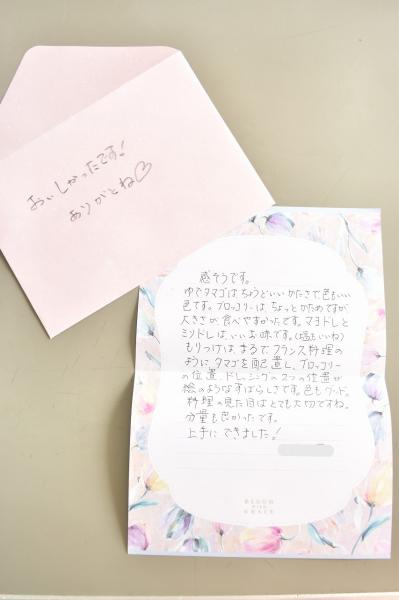 おいしかったです!
ありがとね♡
感そうです。
ゆでタマゴはちょうどいいかたさで、色もいい
色です。ブロッコリーはちょっとかためですが
大きさが食べやすかったです。マヨドレと
ミソドレは、いいお味です。(塩もいいね)
もりつけは、まるでフランス料理の
ようにタマゴを配置し、ブロッコリー
の位置、ドレッシングの2つの位置が
絵のようなすばらしさです。色もグッド。
料理の見た目はとても大切ですね。
分量も良かったです。
上手にできました!
BLOOM
WITH
GRACE